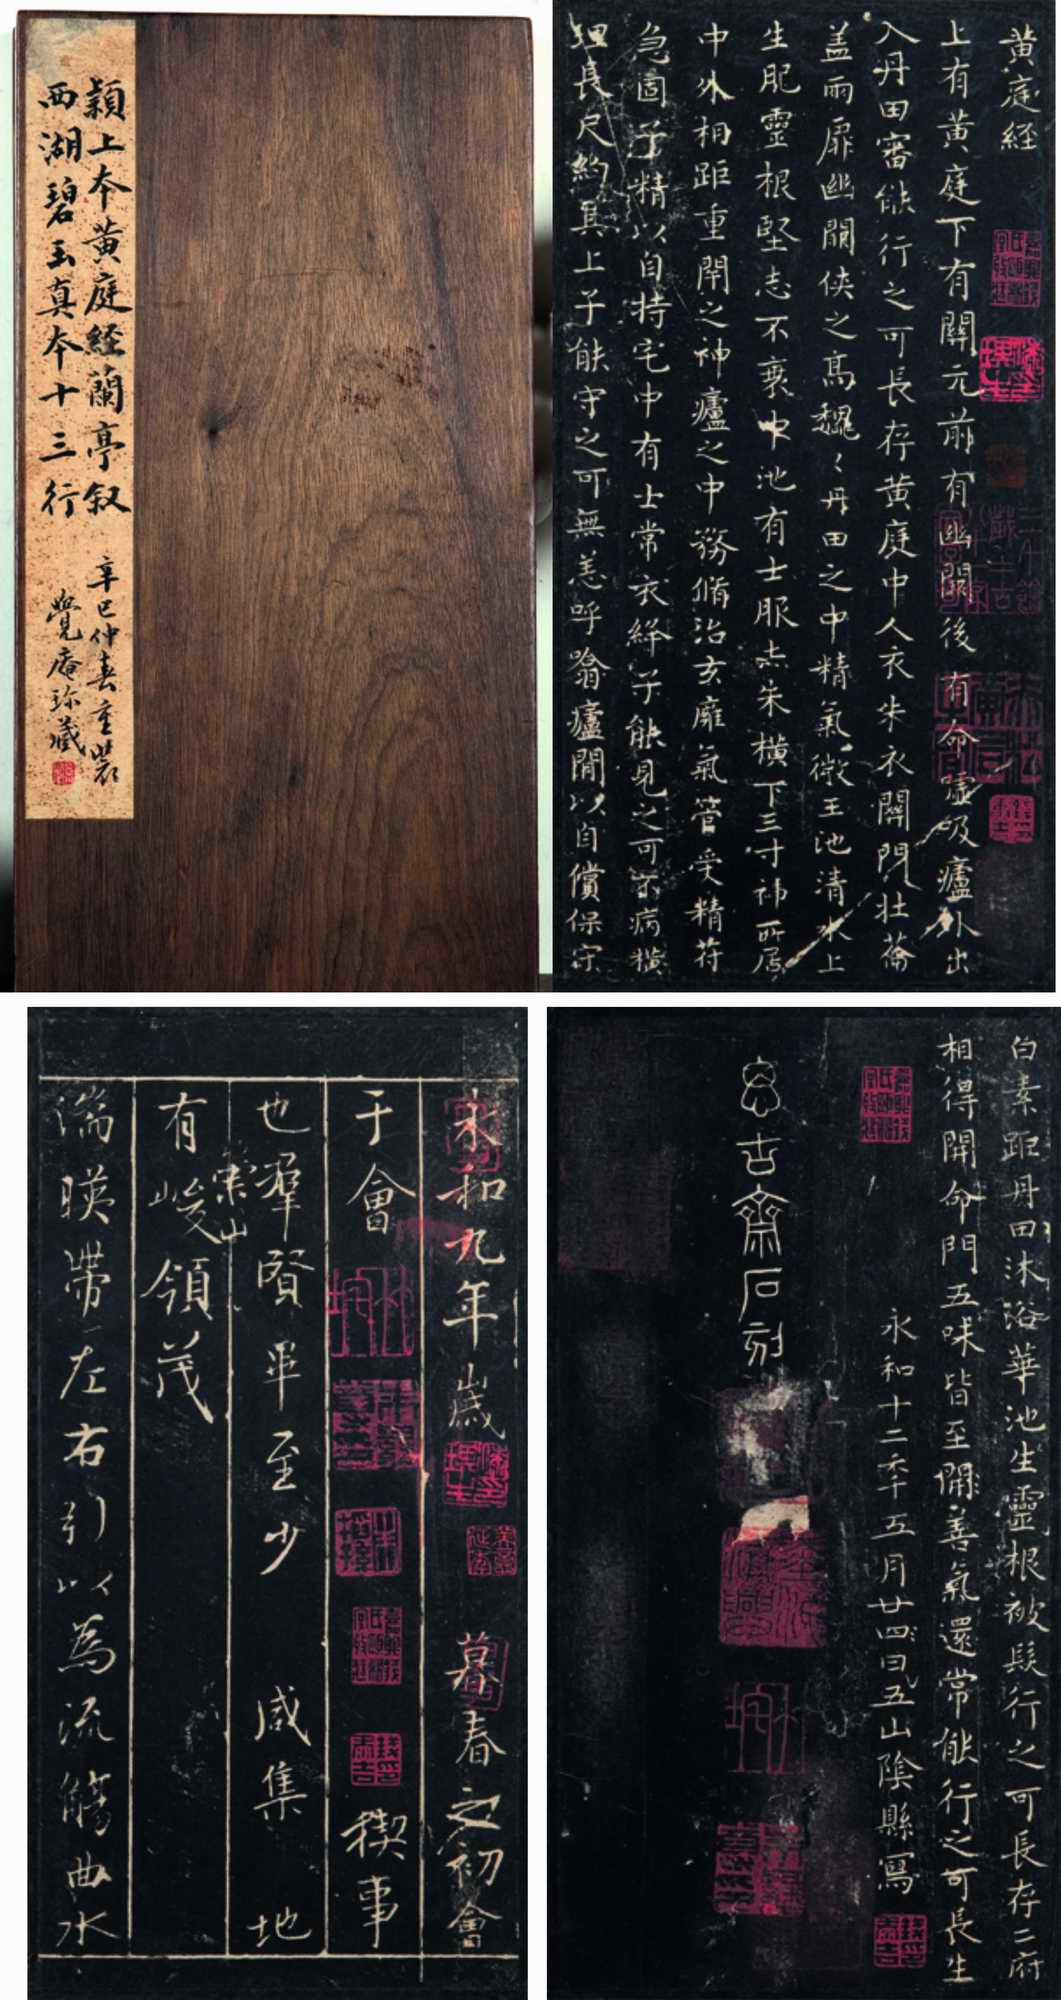 穎上本黄庭経蘭亭叙
西湖碧玉真本十三行
辛巳仲春重裝
覺庵珎藏
黄庭経
上有黄庭下有關元前有幽闕後有命嘘吸廬外出
入丹田審能行之可長存黄庭中人衣朱衣關門壮蘥
盖兩扉幽闕侠之髙巍〻丹田之中精氣微王池清水上
生肥靈根堅志不衰中池有士服赤朱横下三寸神所居
中外相距重閇之神廬之中務脩治玄廱氣管受精符
急固子精以自持宅中有士常衣絳子能見之可不病横
理長尺約其上子能守之可無恙呼噏廬間以自償保守
白素距丹田沐浴華池生靈根被髮行之可長存二府
相得開命門五味皆至開善氣還常能行之可長生
永和十二年五月廿四日五山陰縣寫
思古齋石刻
永和九年歲 暮春之初會
于會 稧事
也羣賢畢至少 咸集 地
有崇山峻領茂
湍暎帶左右引以為流觴曲水